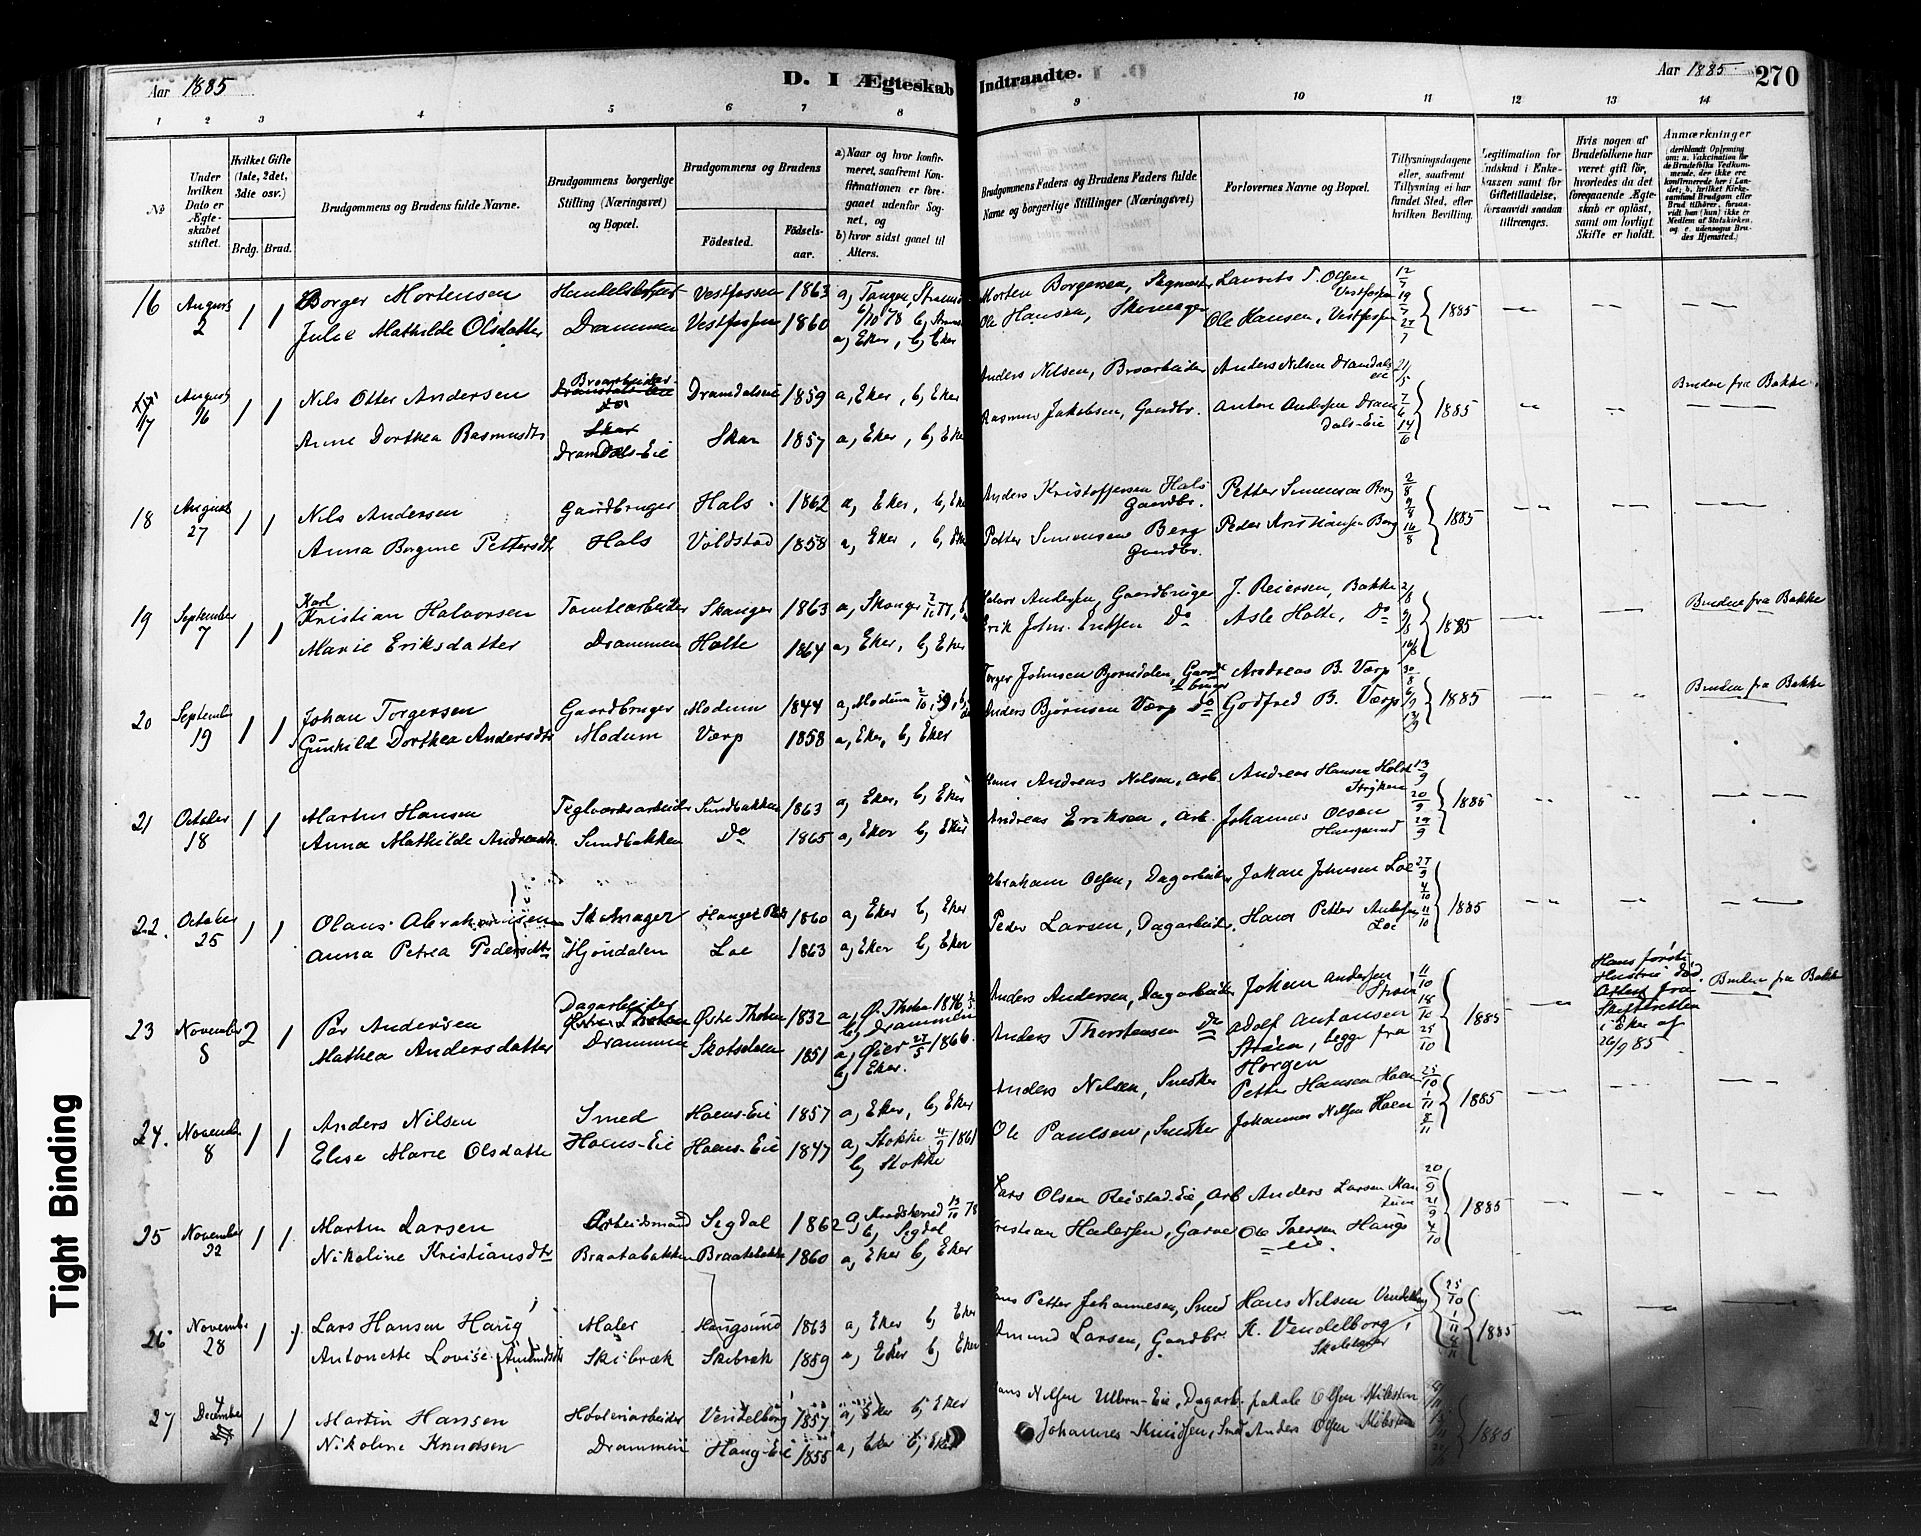 Aar 1885
D. I Ægteskab Indtraadte.
Aar 1885
270
1 2 3 4 5 6 7 8 9 10 11 12 13 14
No
Under hvilken Dato er Ægteskabet stiftet.
Hvilket Gifte (1ste, 2det, 3die osv.)
Brdg. Brud.
Brudgommens og Brudens fulde Navne.
Brudgommens borgerlige Stilling (Næringsvei) og Bopæl.
Brudgommens og Brudens
Födested.
Födselsaar.
a) Naar og hvor konfirmeret, saafremt Konfirmationen er foregaaet udenfor Sognet, og
b) hvor sidst gaaet til Alters.
Brudgommens Faders og Brudens Faders fulde Navne og borgerlige Stillinger (Næringsvei)
Forlovernes Navne og Bopæl.
Tillysningsdagene eller, saafremt Tillysning ei har fundet Sted, efter hvilken Bevilling.
Legitimation for Indskud i Enkekassen samt for Giftetilladelse, forsaavidt saadan tiltrænges.
Hvis nogen af Brudefolkene har været gift för, hvorledes da det foregaaende Ægteskab er oplöst, samt om lovligt Skifte er holdt.
Anmærkninger
16 August 2 1 1 Borger Mortensen Vestfossen 1863 a, Tangen
Morten Borgersen, Laurits T. Olsen Vestfossen 12/7 19/7
Julie Mathilde Olsdatter Drammen Vestfossen 1860 a, Eker, b, Eker
Ole Hansen, Skomager Ole Hansen, Vestfossen 1885
17 August 16 1 1 Nils Otter Andersen Broarbeider Dramdalseie 1859 a, Eker, b, Eker
Anders Nilsen, Broarbeider Anders Nilsen Dramdalseie 1885 Bruden fra Bakke
Anne Dorthea Rasmusdtr Dramdals-Eie Skar 1857 a, Eker, b, Eke
Rasmus Jakobsen, Gaardbr. Anton Andersen Dramdals-Eie 7/6 14/6
18 August 27 1 1 Nils Andersen Gaardbruger Hals 1862 a, Eker, b, Eke
Anders Kristoffersen Hals Gaardbr. Petter Simensen Berg 2/8 9/8 16/8 1885
Anna Bergine Pettersdtr Hals Voldstad 1858 a, Eker, b, Eke
Petter Simensen Berg Gaardbr. Peder Kristiansen Berg
19 September 7 1 1 Karl Kristian Halvorsen Tomtearbeider Skanger 1863 a, Skanger
Halvor Andersen, Gaardbruger J. Reiersen, Bakke 2/8 9/8 16/8 1885 Bruden fra Bakke
Marie Eriksdatter Drammen Holte 1864 a, Eker, b, Eker
Erik John. Eriksen Do Asle Holte, Do
20 September 19 1 1 Johan Torgersen Gaardbruger Modum 1844 a, Modum
Torger Johnsen Bjorndalen, Gaardbruger Andreas B. Værp 30/8 6/9 13/9 1885 Bruden fra Bakke
Gunhild Dorthea Andersdtr Modum Værp 1858 a, Eker, b, Eker
Anders Bjørnsen Værp Do Godfred B. Værp
21 October 18 1 1 Martin Hansen Teglværksarbeider Sundbakken 1863 a, Eker, b, Eker
Hans Andreas Nilsen, Arb. Andreas Hansen 13/9 20/9 1885
Anna Mathilde Andreasdtr Sundbakken Do 1865 a, Eker b, Eker
Andreas Eriksen, Arb. Johannes Olsen Haugsund
22. October 25 1 1 Olaus Abrahamsen Skomager 1860 a, Eker b, Eker
Abraham Olsen, Dagarbeider Johan Johnsen Loe 27/9 4/10 11/10 1885
Anna Petrea Pedersdtr Hjondalen Loe 1863 a, Eker b, Eker
Peder Larsen, Dagarbeider. Hans Petter Andersen Loe
23 November 8 2 1 Per Andersen Dagarbeider Østre Thoten 1832 a, Ø. Thoten 1846 b, Drammen
Anders Andersen, Dagarbeider Johan Andersen Strøm 11/10 18/10 25/10 1885
Hans første Hustru død Attest fra Skifteretten i Eker af 26/9 85 Bruden fra Bakke
Mathea Andersdatter Drammen Skotselven 1851 a, Øier 27/5 1866. b, Eker.
Anders Thorstensen Do Adolf Antonsen Strøm, begge fra Horgen
24. November 8 1 1 Anders Nilsen Smed Hoens-Eie 1857 a, Eker, b, Eker
Anders Nilsen, Smed Petter Hansen Hoen 25/10 1/11 8/11 1885
Elise Marie Olsdatter Hoens-Eie Hoens-Eie 1847 a, Stokke 1861 b, Stokke
Ole Paulsen, Johannes Nilsen Hoen
25 November 22 1 1 Martin Larsen Arbeidsmand Sigdal 1862 a, Kradsherred 13/10 78 b, Sigdal
Lars Olsen Reistad-Eie, Arb Anders Larsen 1885
Nikoline Kristiansdtr Braatabakken Braatabakken 1860 a, Eker b, Eker
Kristian Hadersen, Garver Ole Iversen Haugs eie.
26 November 28 1 1 Lars Hansen Haug Maler Haugsund 1863 a, Eker b, Eker
Hans Petter Johannesen, Smed Hans Nilsen Vendelborg 25/10 1/11 1885
Antonette Lovise Amundsdtr Skibræk Skibræk 1859 a, Eker b, Eker
Amund Larsen, Gaardbr. H. Vendelborg,
27 December 4 1 1 Martin Hansen Høvleriarbeider Vendelborg 1857 a, Eker b, Eker
Hans Nilsen Ulbru-Eie, Dagarb. Jakob Olsen Milesten 1885
Nikoline Knudsen Drammen Haug-Eie 1855 a, Eker b, Eker
Johannes Knudsen, Smed Anders Olsen Milesten
Tight Binding